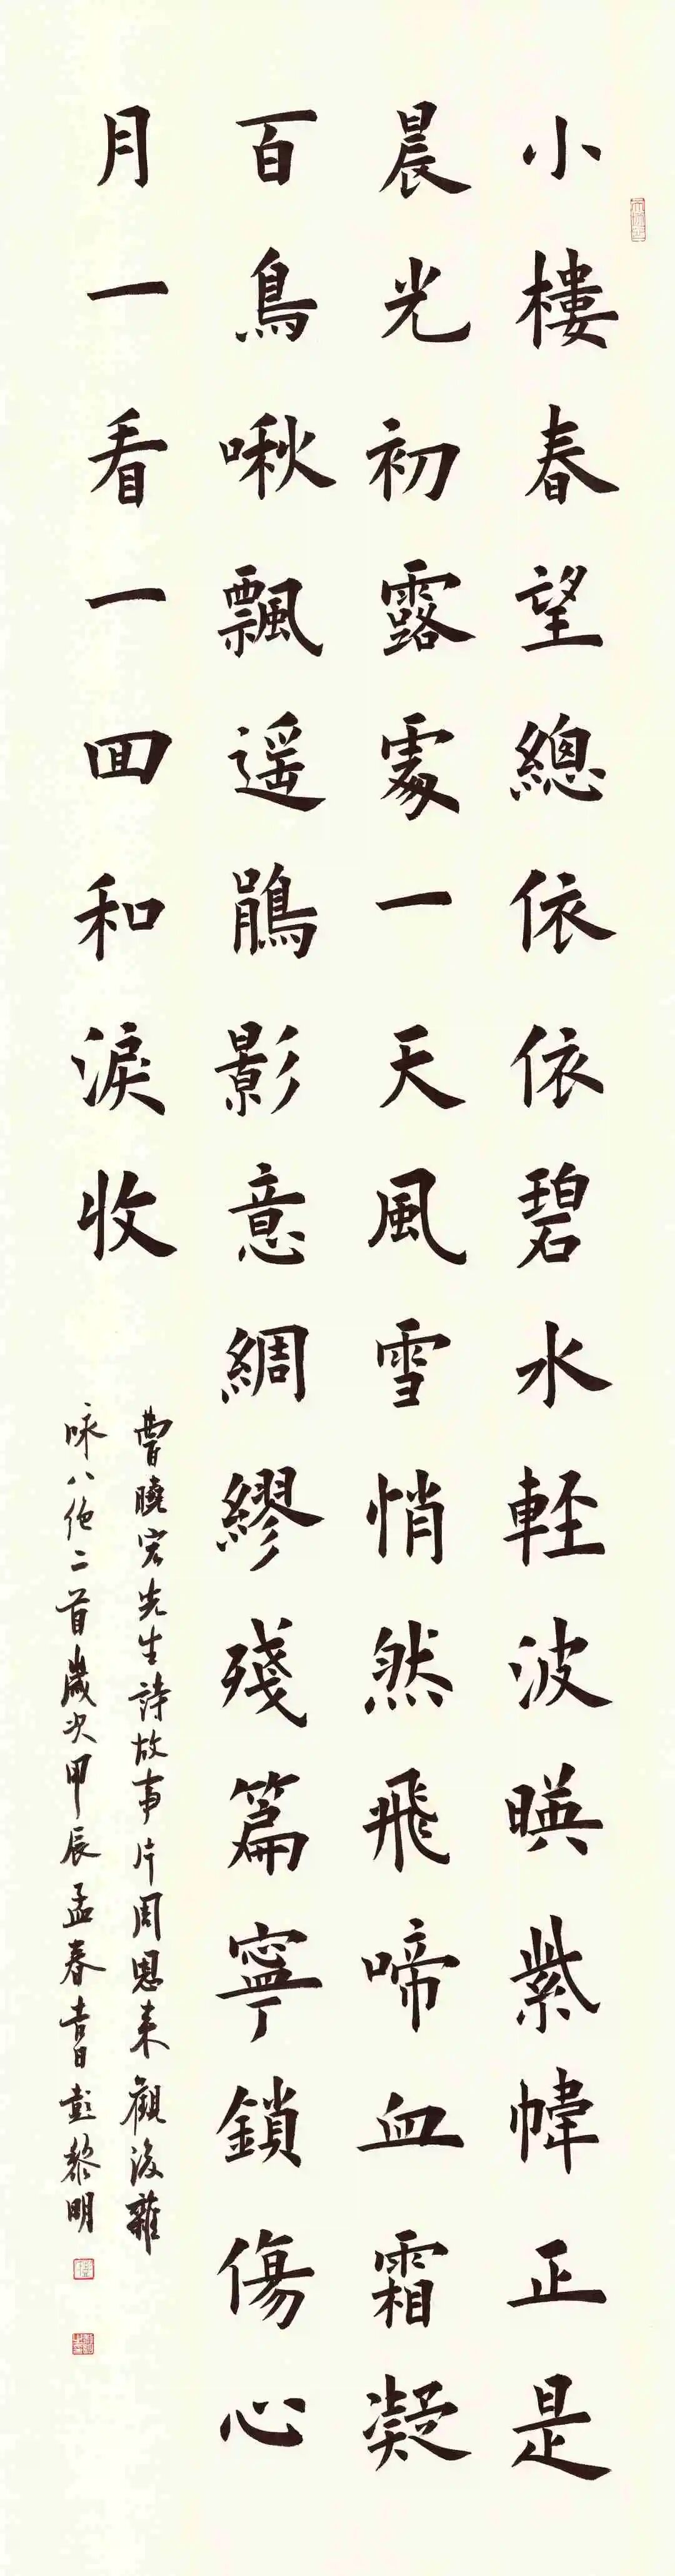 小樓春望總依依碧水輕波暎紫幃正是
晨光初露處一天風雪悄然飛啼血霜凝
百鳥啾飄遥鵑影意綢繆殘篇寧鎖傷心
月一看一回和淚收
曹曉宏先生詩故事片周恩来觀後雜
咏八绝二首歲次甲辰孟春書彭黎明